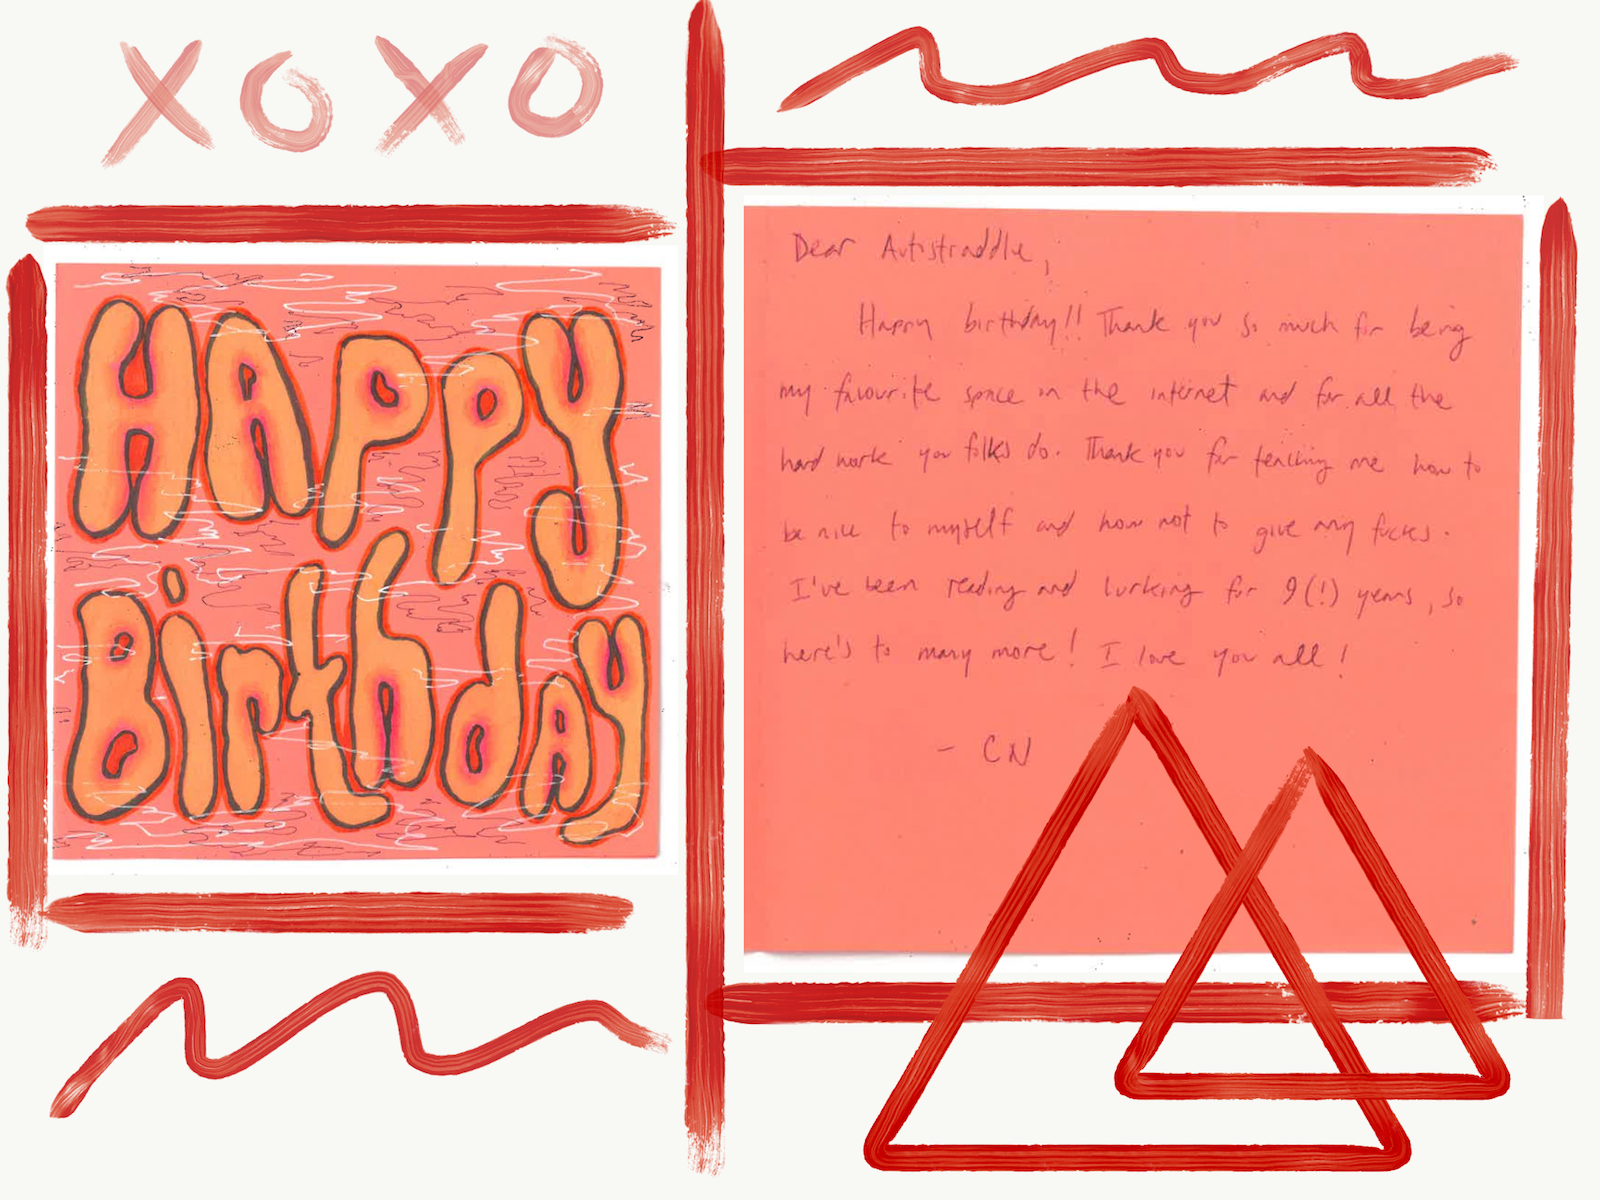 XOXO
HAPPY
Birthday
Dear Autistraddle,
Happy birthday!! Thank you so much for being
my favourite space on the internet and for all the
hard work you folks do. Thank you for teaching me how to
be nice to myself and how not to give any fucks.
I've been reading and lurking for 9(!) years, so
here's to many more! I love you all!
- CN